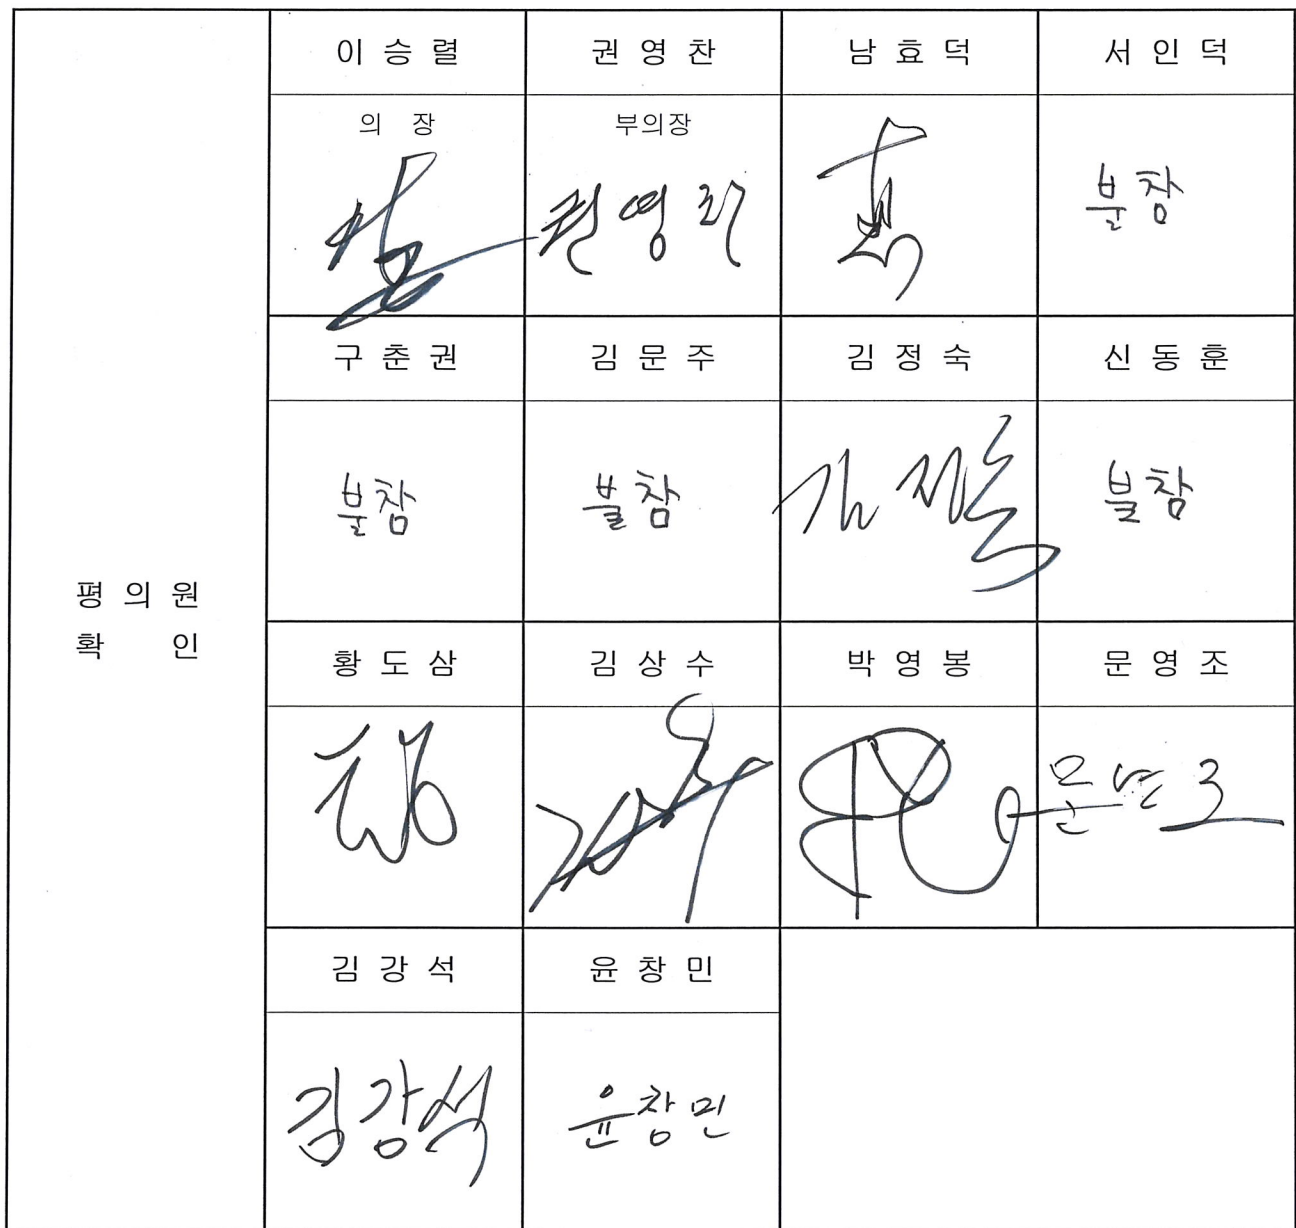 이 승 렬 권 영 찬 남 효 덕 서 인 덕
의 장 부의장
권영찬 불참
구 춘 권 김 문 주 김 정 숙 신 동 훈
불참 불참 김정숙 불참
평 의 원
확 인
황 도 삼 김 상 수 박 영 봉 문 영 조
문영조
김 강 석 윤 창 민
김강석 윤창민